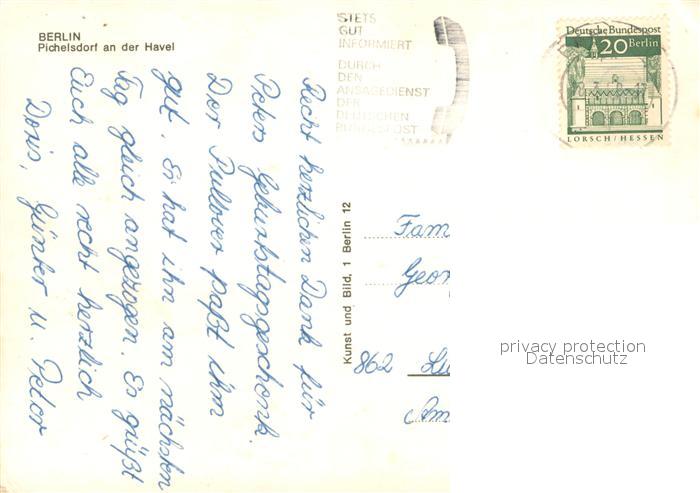 BERLIN
Pichelsdorf an der Havel
STETS
GUT
INFORMIERT
DURCH
DEN
ANSAGEDIENST
DER
DEUTSCHEN
BUNDESPOST
Deutsche Bundespost
20 Berlin
LORSCH/HESSEN
Recht herzlichen Dank für
Peters Geburtstagsgeschenk.
Der Pullover paßt ihm
gut. Er hat ihn am nächsten
Tag gleich angezogen. Es grüßt
Euch alle recht herzlich
Doris, Günter u. Peter
Kunst und Bild, 1 Berlin 12
Fam
Geor
862
Am
privacy protection
Datenschutz